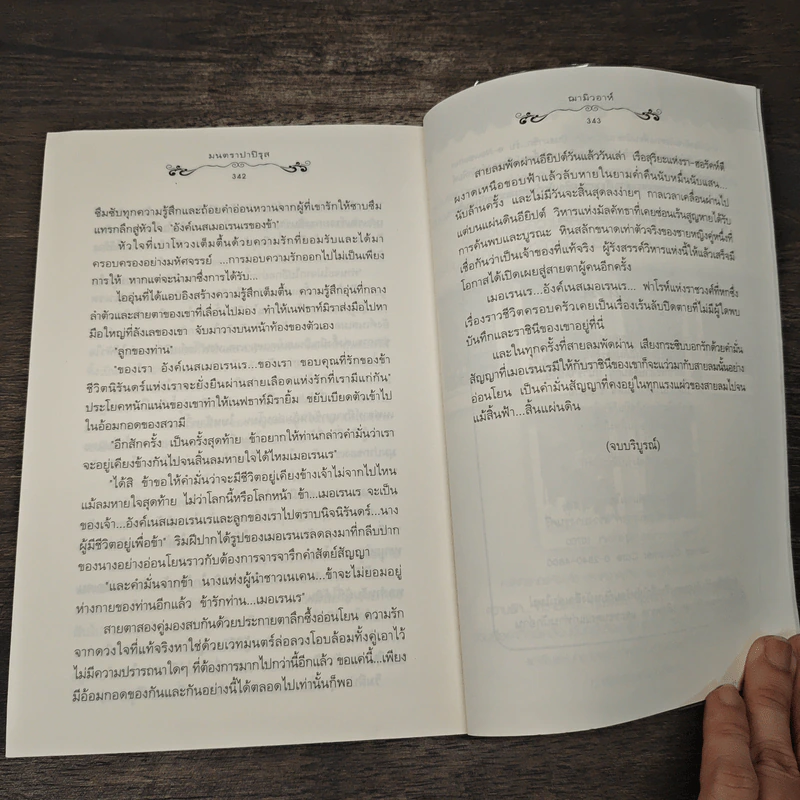 มนตราปาปิรุส
342
ซึมซับทุกความรู้สึกและถ้อยคำอ่อนหวานจากผู้ที่เขารักให้ซาบซึม
แทรกลึกสู่หัวใจ 'อังค์เนสเมอเรนเรของข้า'
หัวใจที่เบาโหวงเต็มตื้นด้วยความรักที่ยอมรับและได้มา
ครอบครองอย่างมหัศจรรย์ ...การมอบความรักออกไปไม่เป็นเพียง
การให้ หากแต่จะนำมาซึ่งการได้รับ...
ไออุ่นที่ได้แอบอิงสร้างความรู้สึกเต็มตื้น ความรู้สึกอุ่นที่กลาง
ลำตัวและสายตาของเขาที่เลื่อนไปมอง ทำให้เนฟธาท์มิราส่งมือไปหา
มือใหญ่ที่ลังเลของเขา จับมาวางบนหน้าท้องของตัวเอง
"ลูกของท่าน"
"ของเรา อังค์เนสเมอเรนเร...ของเรา ขอบคุณที่รักของข้า
ชีวิตนิรันดร์แห่งเราจะยังยืนผ่านสายเลือดแห่งรักที่เรามีแก่กัน"
ประโยคหนักแน่นของเขาทำให้เนฟธาท์มิรายิ้ม ขยับเบียดตัวเข้าไป
ในอ้อมกอดของสวามี
"อีกสักครั้ง เป็นครั้งสุดท้าย ข้าอยากให้ท่านกล่าวคำมั่นว่าเรา
จะอยู่เคียงข้างกันไปจนสิ้นลมหายใจได้ไหมเมอเรนเร"
"ได้สิ ข้าขอให้คำมั่นว่าจะมีชีวิตอยู่เคียงข้างเจ้าไม่จากไปไหน
แม้ลมหายใจสุดท้าย ไม่ว่าโลกนี้หรือโลกหน้า ข้า...เมอเรนเร จะเป็น
ของเจ้า...อังค์เนสเมอเรนเรและลูกของเราไปตราบนิจนิรันดร์...นาง
ผู้มีชีวิตอยู่เพื่อข้า" ริมฝีปากได้รูปของเมอเรนเรลดลงมาที่กลีบปาก
ของนางอย่างอ่อนโยนราวกับต้องการจารจารึกคำสัตย์สัญญา
"และคำมั่นจากข้า นางแห่งผู้นำชาวเนเคน...ข้าจะไม่ยอมอยู่
ห่างกายของท่านอีกแล้ว ข้ารักท่าน...เมอเรนเร"
สายตาสองคู่มองสบกันด้วยประกายตาลึกซึ้งอ่อนโยน ความรัก
จากดวงใจที่แท้จริงหาใช่ด้วยเวทมนตร์ล่อลวงโอบล้อมทั้งคู่เอาไว้
ไม่มีความปรารถนาใดๆ ที่ต้องการมากไปกว่านี้อีกแล้ว ขอแค่นี้...เพียง
มีอ้อมกอดของกันและกันอย่างนี้ได้ตลอดไปเท่านั้นก็พอ
ฌามิวอาห์
343
สายลมพัดผ่านอียิปต์วันแล้ววันเล่า เรือสุริยะแห่งรา-ฮอรัคห์ตี
ผงาดเหนือขอบฟ้าแล้วลับหายในยามค่ำคืนนับหมื่นนับแสน...
นับล้านครั้ง และไม่มีวันจะสิ้นสุดลงง่ายๆ กาลเวลาเคลื่อนผ่านไป
แต่บนแผ่นดินอียิปต์ วิหารแห่งมัลคัทธาที่เคยซ่อนเร้นสูญหายได้รับ
การค้นพบและบูรณะ หินสลักขนาดเท่าตัวจริงของชายหญิงคู่หนึ่งที่
เชื่อกันว่าเป็นเจ้าของที่แท้จริง ผู้รังสรรค์วิหารแห่งนี้ให้แล้วเสร็จมี
โอกาสได้เปิดเผยสู่สายตาผู้คนอีกครั้ง
เมอเรนเร...อังค์เนสเมอเรนเร... ฟาโรห์แห่งราชวงศ์ที่หกซึ่ง
เรื่องราวชีวิตครอบครัวเคยเป็นเรื่องเร้นลับปิดตายที่ไม่มีผู้ใดพบ
บันทึกและราชินีของเขาอยู่ที่นี่
และในทุกครั้งที่สายลมพัดผ่าน เสียงกระซิบบอกรักด้วยคำมั่น
สัญญาที่เมอเรนเรมีให้กับราชินีของเขาก็จะแว่วมากับสายลมนั้นอย่าง
อ่อนโยน เป็นคำมั่นสัญญาที่คงอยู่ในทุกแรงแผ่วของสายลมไปจน
แม้สิ้นฟ้า...สิ้นแผ่นดิน
(จบบริบูรณ์)